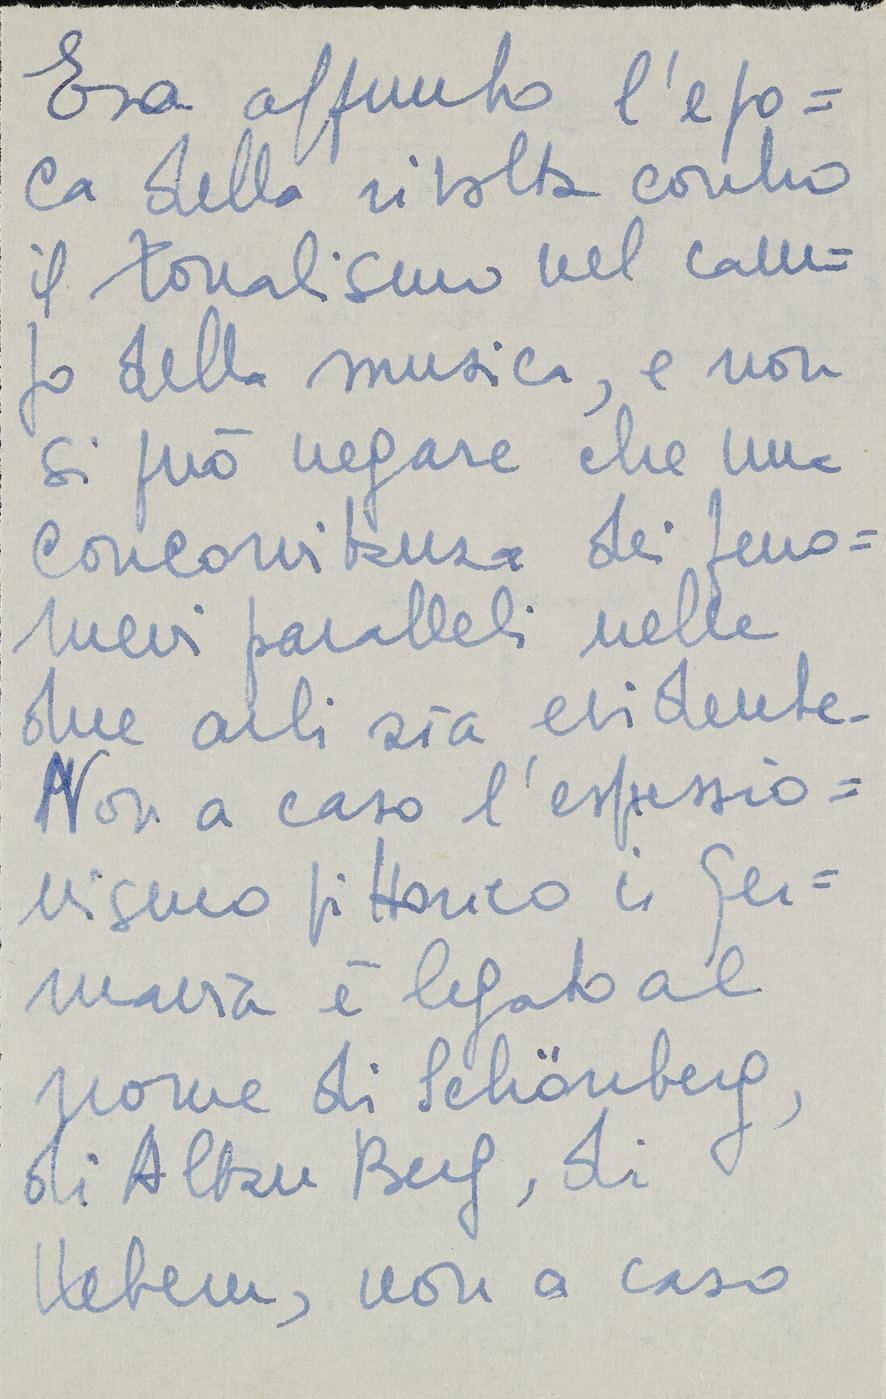 Era appunto l'epo=
ca della rivolta contro
il tonalismo nel cam=
po della musica, e non
si può negare che una
concomitanza dei feno=
meni paralleli nelle
due arti sia evidente.
Non a caso l'espressio=
nismo pittorico in Ger=
mania è legato al
nome di Schönberg,
di Alban Berg, di
Webern, non a caso